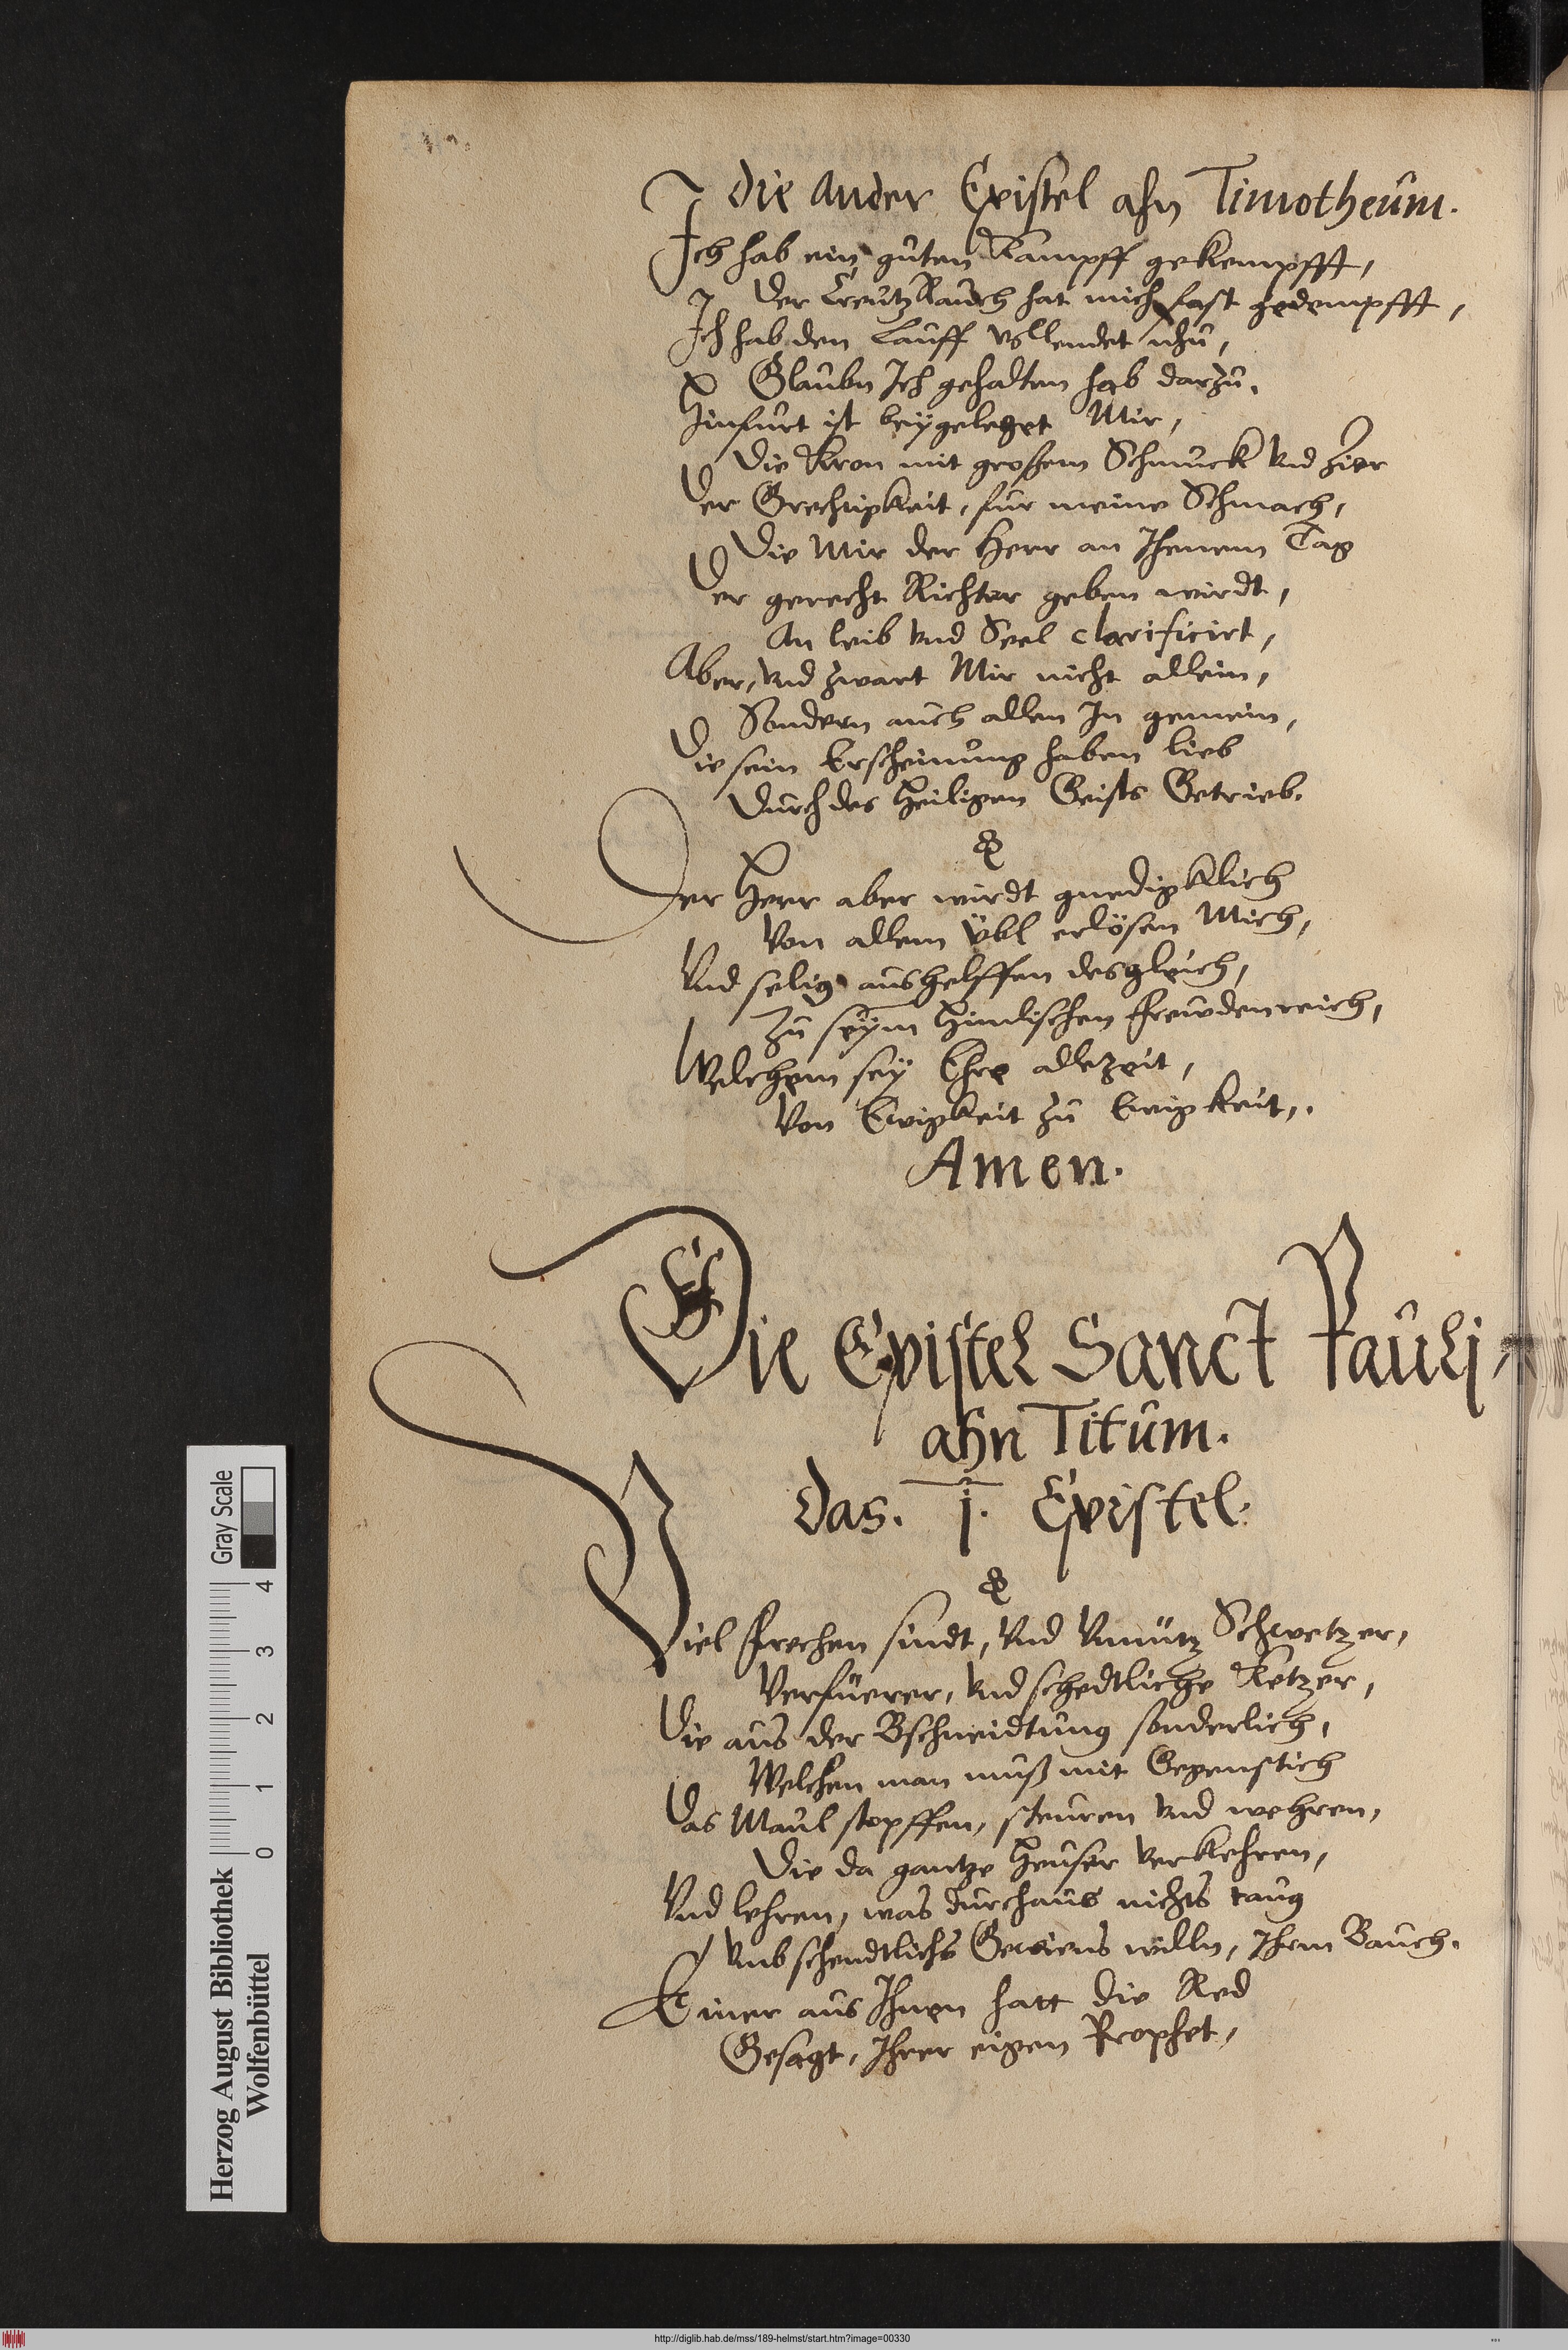 die Ander Epistel ahn Timotheum.
Ich hab ein guten Kampff gekempfft,
Der Creutz Rauch hat mich fast gedempfft,
Ich hab den Lauff vollendet nhu,
Glaubn Ich gehalten hab darzu.
Hinfurt ist beygeleget Mir,
Die Kron mit grossem Schmuck vnd Zier
Der Grechtigkeit, fur meine Schmach,
Die Mir der Herr an Jhenem Tag
Der gerecht Richter geben wirdt,
An leib vnd Seel clarificirt,
Aber, vnd zwart Mir nicht allein,
Sondern auch allen In gemein,
Die sein Erscheinung haben lieb
Durch des Heiligen Geists Getrieb.
Der Herr aber wirdt gnedigklich
Von allem übl erlösen Mich,
Vnd selig aushelffen desgleich,
Zu seym Himlischen Frewdenreich,
Welchem sey Ehre allezeit,
Von Ewigkeit zu Ewigkeit.
Amen.
Die Epistel Sanct Pauli
ahn Titum.
das. 1. Epistel.
Viel frechen sindt, vnd Vnnütz Schwetzer,
Verfüerer, vnd schedtliche Ketzer,
Die aus der Bschneidtung sonderlich,
Welchen man muß mit Gegenstich
Das Maul stopffen, steuren vnd wehren,
Die da gantze Heuser verkehren,
Vnd lehren, was durchaus nichts taug
Vmb schendtlichs Gewiens willn, Ihrm Bauch.
Einer aus Ihnen hatt die Red
Gesagt, Ihrer eigen Prophet,
Herzog August Bibliothek
Wolfenbüttel
0 1 2 3 4
Gray Scale
http://diglib.hab.de/mss/189-helmst/start.htm?image=00330